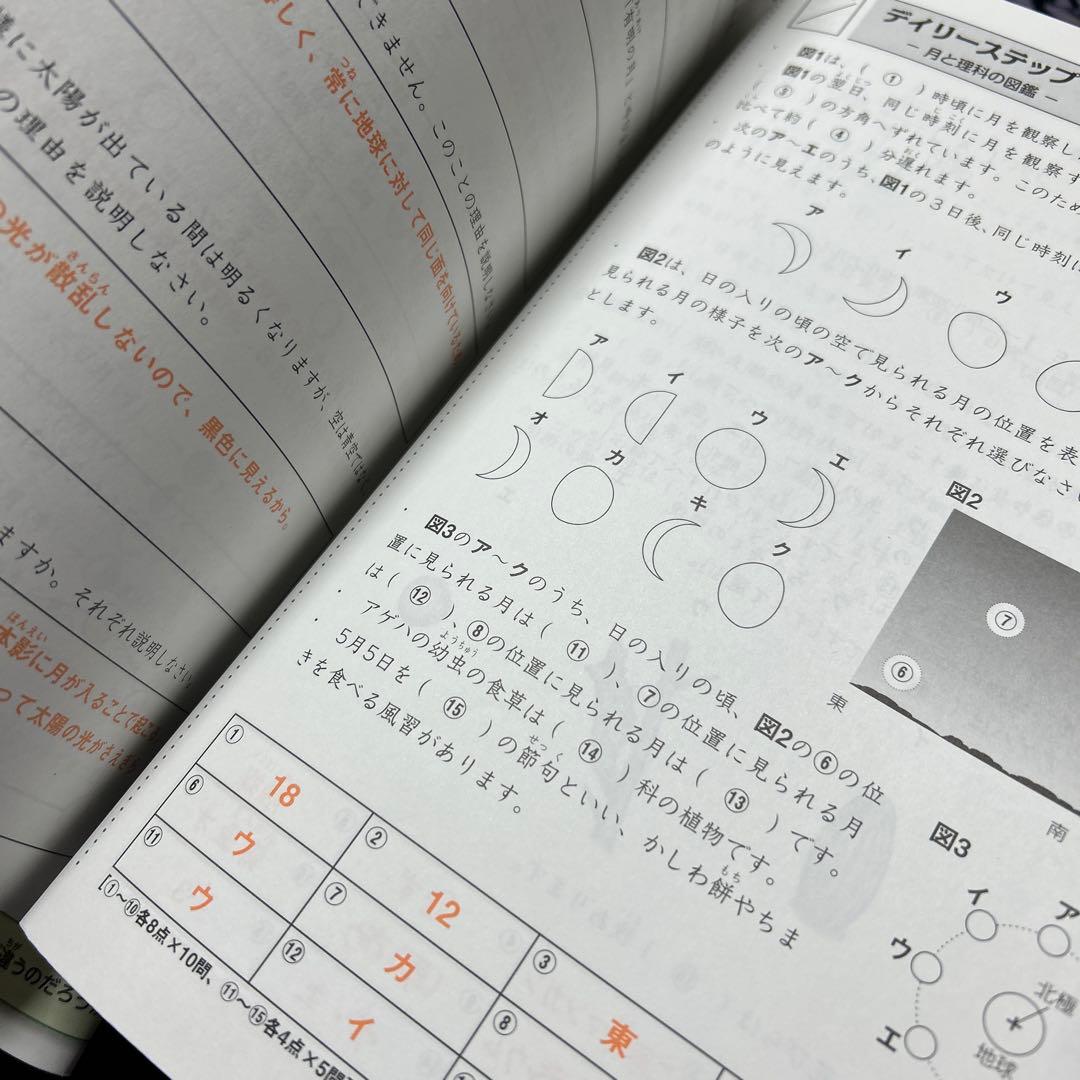 できません。このことの理由を説明しなさい
しく、常に地球に対して同じ面を向けているから
つね
様に太陽が出ている間は明るくなりますが、空は青空では
の理由を説明しなさい。
の光が散乱しないので、黒色に見えるから。
さんらん
ますか。それぞれ説明しなさい
ほんえい
本影に月が入ることで起こ
って太陽の光がさえぎら
ちが
違うのだろう
デイリーステップ
－月と理科の図鑑－
図1は、( ① )時頃に月を観察し
図1の翌日、同じ時刻に月を観察す
( ③ )の方角へずれています。このため
比べて約( ④ )分遅れます。
次のア～エのうち、図1の3日後、同じ時刻に
のように見えます。
ア
イ
ウ
図2は、日の入りの頃の空で見られる月の位置を表
見られる月の様子を次のア～クからそれぞれ選びなさい
とします。
ア
イ
ウ
エ
オ
カ
キ
ク
図2
⑦
⑥
東
南
図3のア～クのうち、日の入りの頃、図2の⑥の位
置に見られる月は( ⑪ )、⑦の位置に見られる月
は( ⑫ )、⑧の位置に見られる月は( ⑬ )です。
アゲハの幼虫の食草は( ⑭ )科の植物です。
ようちゅう
5月5日を( ⑮ )の節句といい、かしわ餅やちま
せっく
もち
きを食べる風習があります。
図3
ア
イ
ウ
エ
北極
地球
① 18
② 12
③ 東
⑥ ウ
⑦ カ
⑧
⑪ ウ
⑫ イ
[①～⑩各8点×10問、⑪～⑮各4点×5問